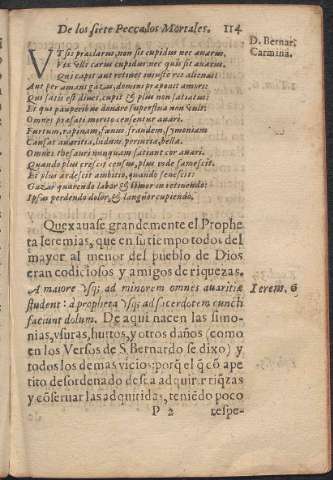 De los siete Peccados Mortales. 114
D. Bernar.
Carmina.
VT sis præclarus, non sis cupidus nec auarus.
Vix esse carus cupidus nec quis sit auarus.
Qui capit aut retinet iniuste res alienas:
Aut per amans gazas, domini præponit amori:
Qui satis est diues, cupit & plus non satiatur:
Et qui pauperibus donare superflua non vult:
Omnes prefati merito censentur auari.
Furtum, rapinam, fœnus fraudem, symoniam
Causat auaritia, ludum, periuria, bella.
Omnes thesauri nunquam satiant cor auari.
Quando plus crescit census, plus inde famescit.
Et plus ardescit ambitio, quando senescit:
Gazas quærendo labor & timor in retinendo:
Ipsas perdendo dolor, & languor cupiendo.
Quexauase grandemente el Prophe
ta Ieremias, que en su tiempo todos del
mayor al menor del pueblo de Dios
eran codiciosos y amigos de riquezas.
A maiore vsq; ad minorem omnes auaritiæ
Ierem. 6
student: à propheta vsq; ad sacerdotem cuncti
faciunt dolum. De aqui nacen las simo-
nias, vsuras, hurtos, y otros daños (como
en los Versos de S. Bernardo se dixo) y
todos los demas vicios: porq̃ el q̃ cõ ape
tito desordenado desea adquirir riq̃zas
y cõseruar las adquiridas, teniẽdo poco
P 2 respe-